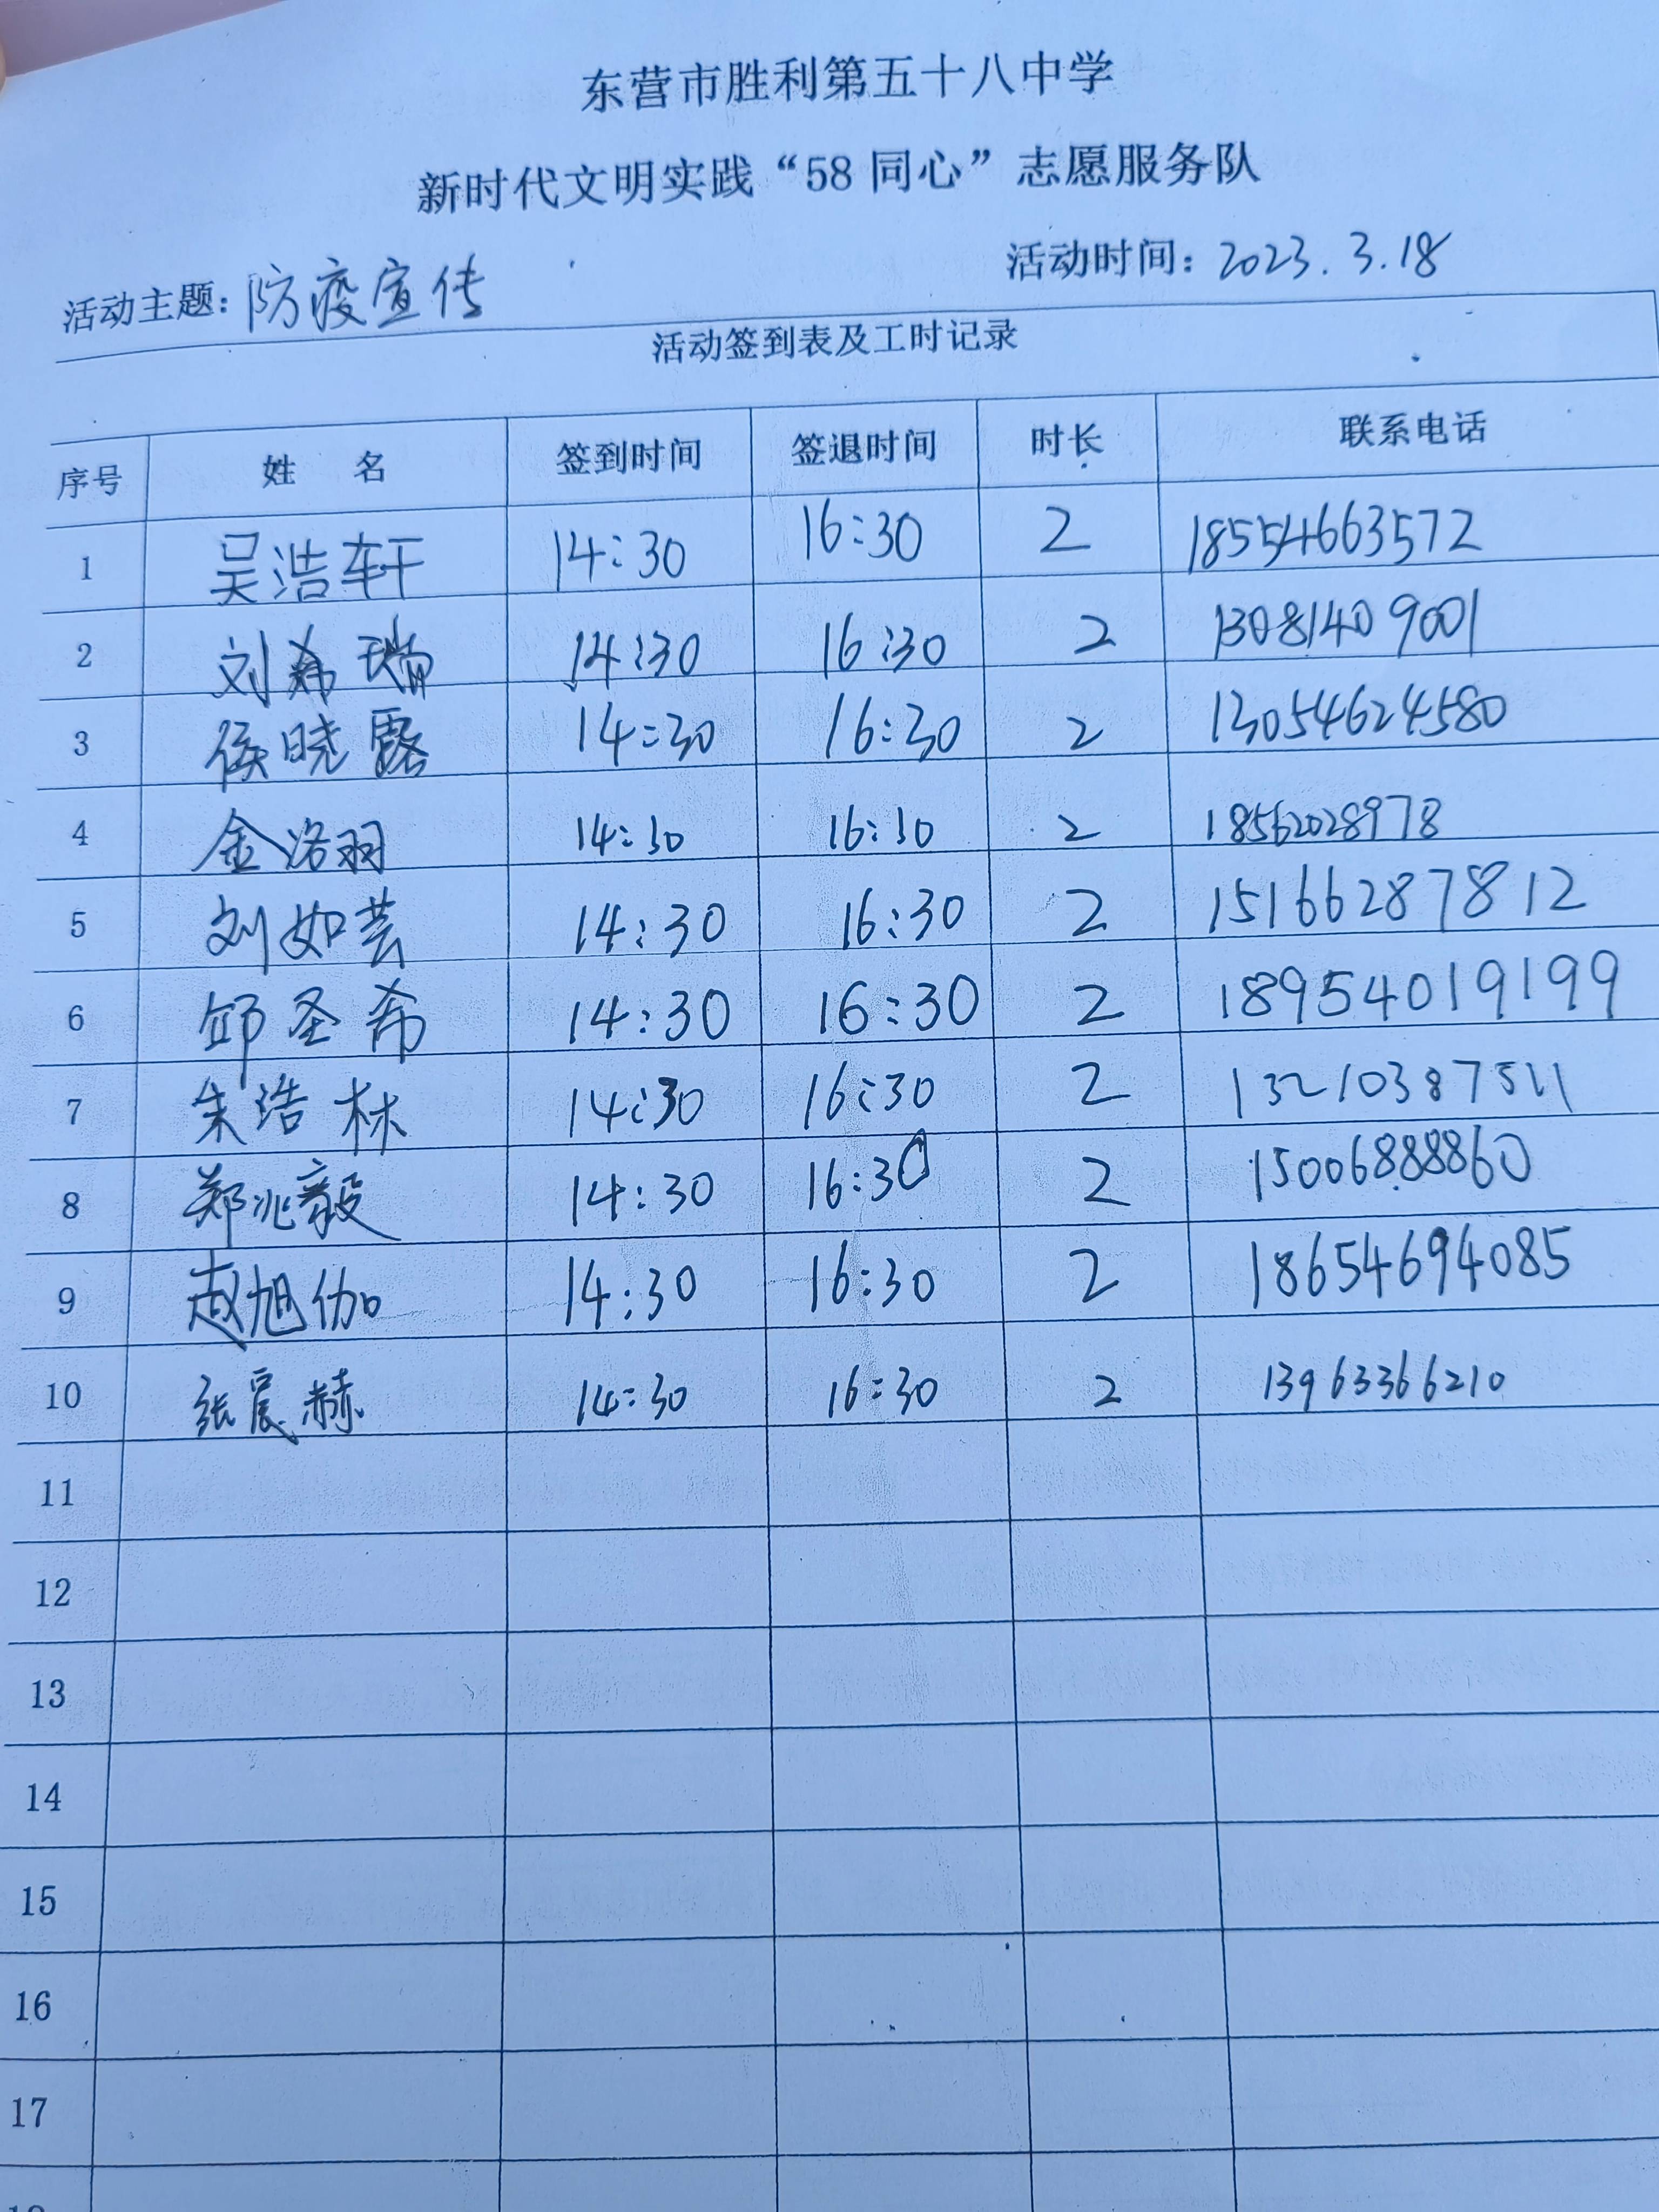 东营市胜利第五十八中学
新时代文明实践“58同心”志愿服务队
活动主题：防疫宣传 活动时间：2023.3.18
活动签到表及工时记录
序号 姓 名 签到时间 签退时间 时长 联系电话
1 吴浩轩 14:30 16:30 2 18554663572
2 刘希瑞 14:30 16:30 2 13081409001
3 侯晓露 14:30 16:30 2 13054624580
4 金洛羽 14:30 16:30 2 18562028978
5 刘如芸 14:30 16:30 2 15166287812
6 邱圣希 14:30 16:30 2 18954019199
7 朱浩林 14:30 16:30 2 13210387511
8 郑兆毅 14:30 16:30 2 15006888860
9 赵旭伽 14:30 16:30 2 18654694085
10 张宸赫 14:30 16:30 2 13963366210
11
12
13
14
15
16
17